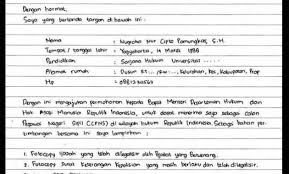 Dengan hormat,
Saya yang bertanda tangan di bawah ini :
Nama : Nugroho Nur Cipto Pamungkas, S.H.
Tempat / tanggal lahir : Yogyakarta, 14 Maret 1988
Pendidikan : Sarjana Hukum Universitas .....
Alamat rumah : Dusun RT.../RW..., Kelurahan, Kec, Kabupaten, Prop
Hp :
Dengan ini mengajukan permohonan kepada Bapak Menteri Departemen Hukum dan
Hak Asasi Manusia Republik Indonesia, untuk dapat menerima saya sebagai Calon
Pegawai Negeri Sipil (CPNS) di wilayah hukum Republik Indonesia. Sebagai bahan per-
timbangan bersama ini saya lampirkan :
1. Fotocopy Ijazah yang telah dilegalisir oleh Pejabat yang Berwenang.
2. Fotocopy Surat Keterangan Kepolisian yang masih berlaku dan telah dilegalisir.